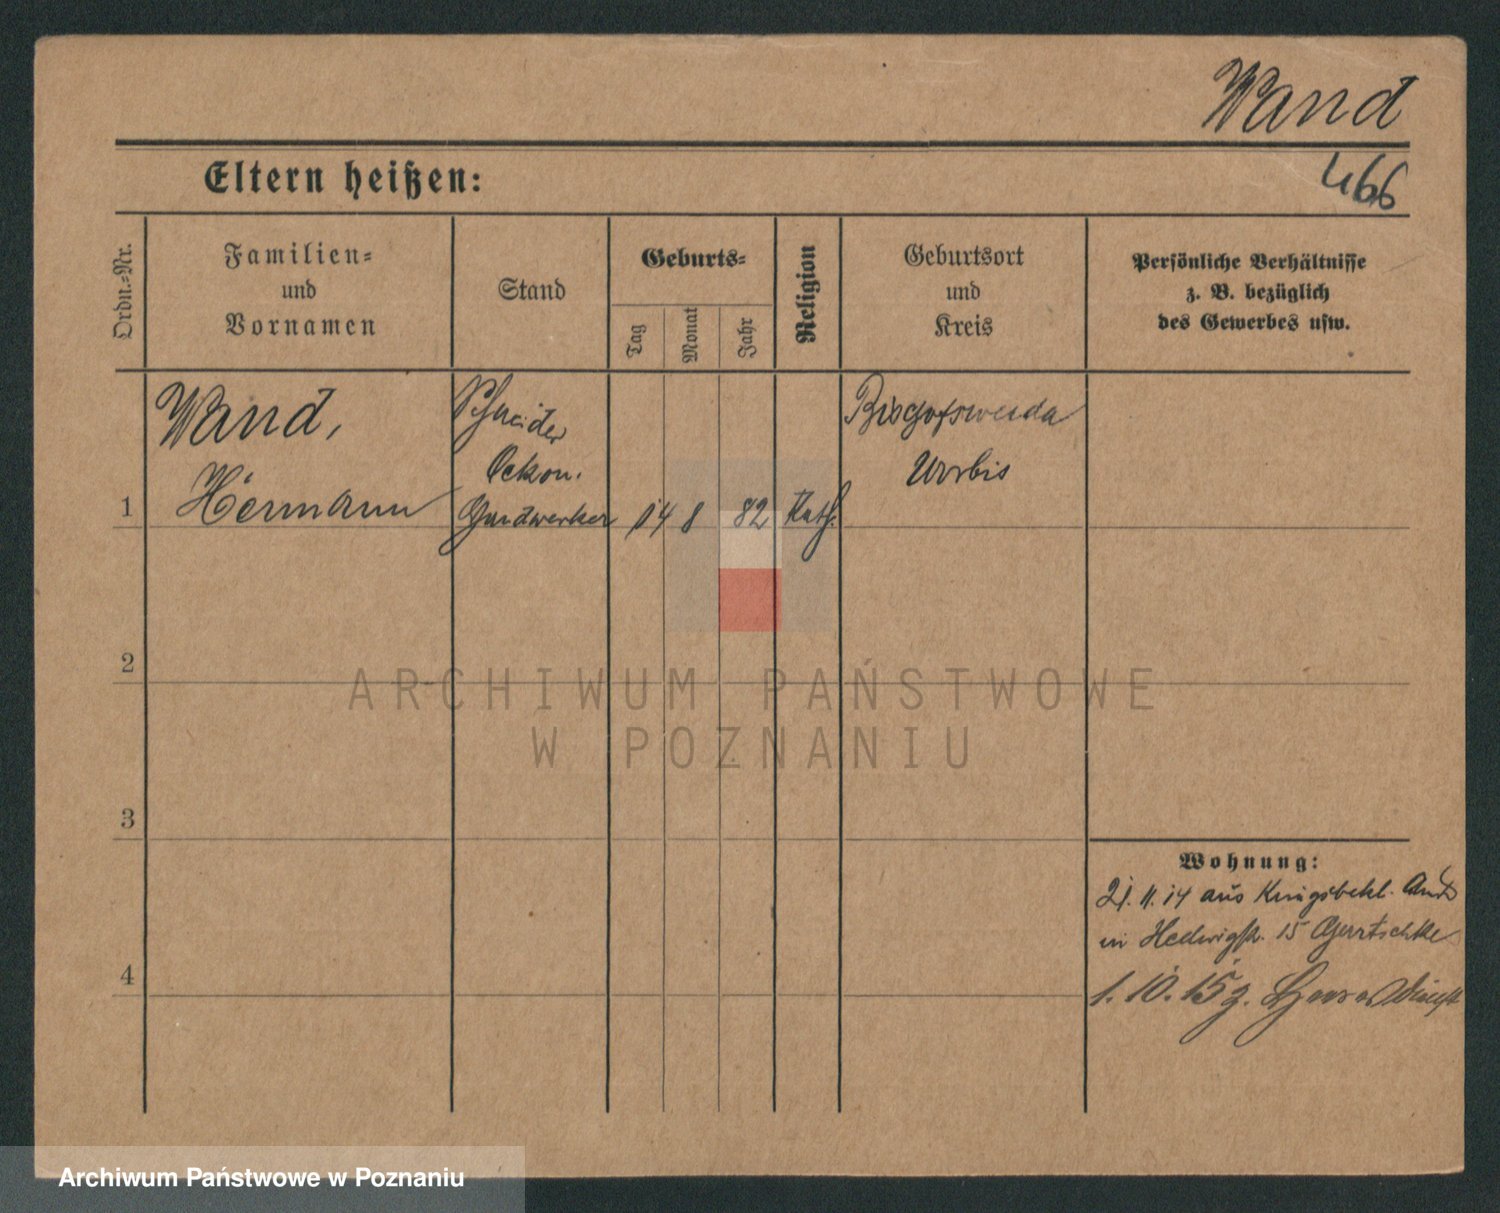 Wand
466
Eltern heißen:
Ordn.-Nr.
Familien-
und
Vornamen
Stand
Geburts-
Tag
Monat
Jahr
Religion
Geburtsort
und
Kreis
Persönliche Verhältnisse
z. B. bezüglich
des Gewerbes usw.
Wand,
Hermann
Schneider
Oekon.
Handwerker
14 8 82 Kath.
Bischofswerda
Worbis
1
2
ARCHIWUM PAŃSTWOWE
W POZNANIU
3
Wohnung:
21. 11. 14 aus Kriegsbekl. Amt
in Hedwigstr. 15
4
1. 10. 15 z.
Archiwum Państwowe w Poznaniu